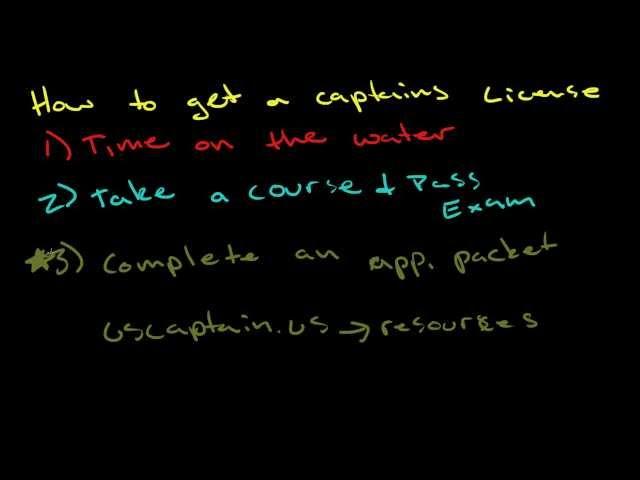 How to get a captains License
1) Time on the water
2) Take a course + Pass
Exam
★3) complete an app. packet
uscaptain.us → resources